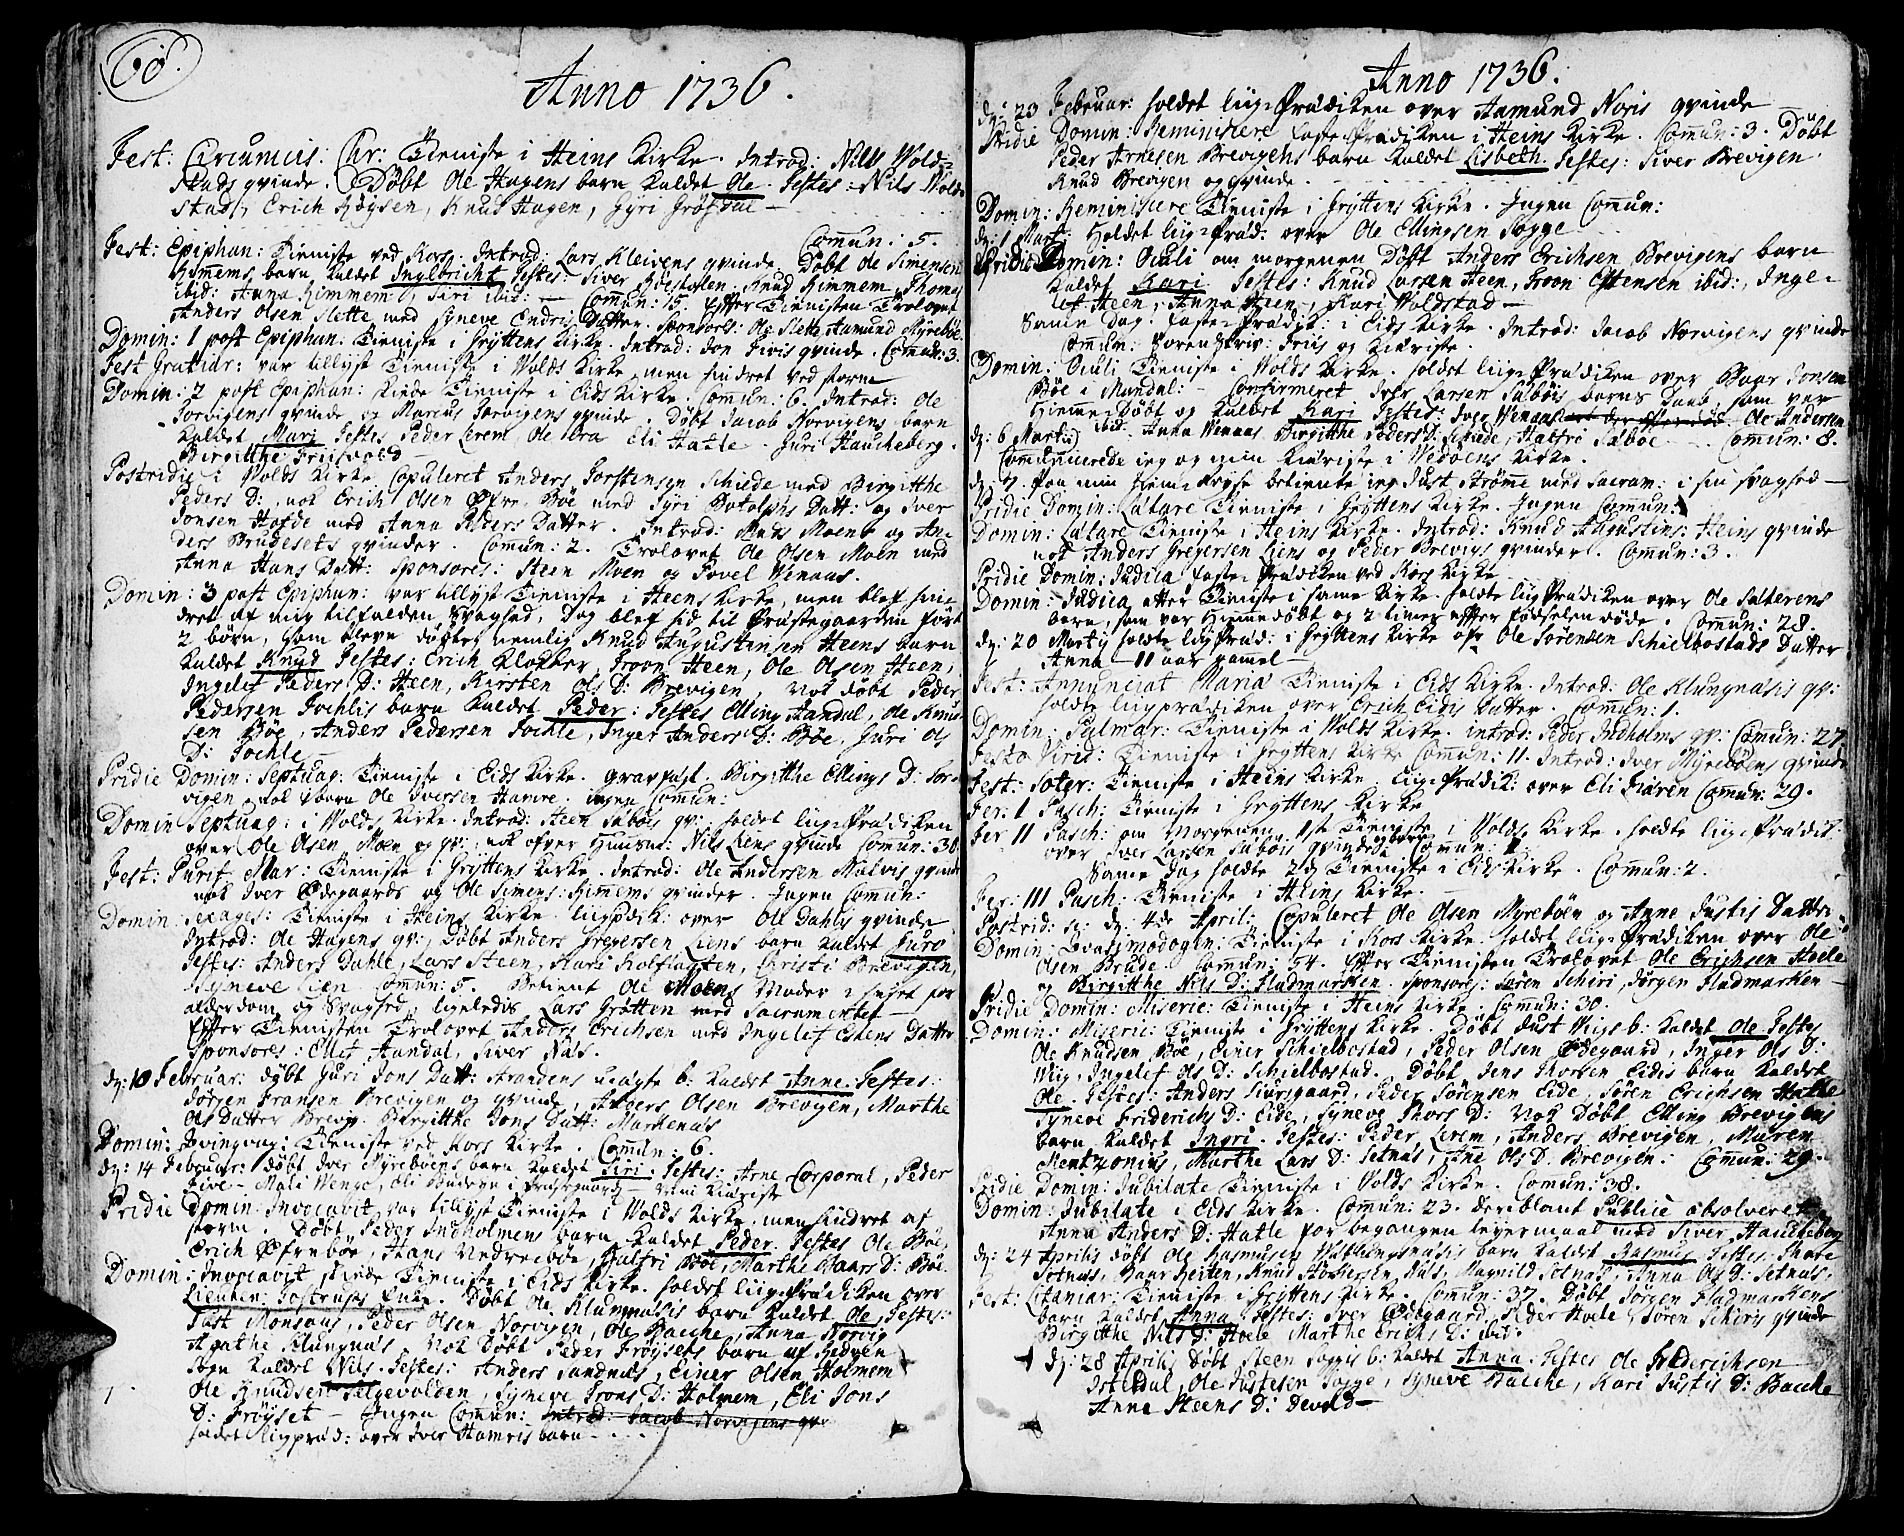 60.
Anno 1736.
Fest: Circumcis: Chr: Tieniste i Heins Kirke. Introd: Nils Vold-
stads qvinde. Døbt Ole Hagens barn kaldet Ole. Testes: Nils Vold-
stad, Erich Røysen, Knud Hagen, Gyri Grøsdal
Comun: 5.
Fest: Epiphan: Tieniste ved Kors. Introd: Lars Kleivens qvinde. Døbt Ole Simensen
Rimems barn kaldet Ingelbricht Testes: Siver Knud Rimmem, Thomas
ibid: Anna Rimmem, Siri ibid: — Comun: 15. Efter Tienisten Trolovet
Anders Olsen Slette med Syneve Endris Datter. Sponsores: Ole Slette, Aamund Myrebøe.
Domin: 1 post Epiphan: Tieniste i Gryttens Kirke. Introd: Jon qvinde. Comun: 3.
Fest Gratiar: var tillyst Tieniste i Volds Kirke, men hindret ved storm
Domin: 2 post Epiphan: holdte Tieniste i Eids Kirke. Comun: 6. Introd: Ole
Torvigens qvinde og Marcus Torvigens qvinde. Døbt Jacob Norvigens barn
kaldet Mari Testes Peder Lerem, Ole Bra Eli Hatle. Guri Haucheberg.
Birgitthe Friisvold
Postridie i Volds Kirke Copuleret Anders Torstensen Schiede med Birgitthe
Peders D: nok Erich Olsen Øfre Bøe med Gyri Botolphs Datt: og Iver
Jonsen Hofde med Anna Peders Datter. Introd: Mads Moens og An-
ders Brudesets qvinder. Comun: 2. Trolovet Ole Olsen Moen med
Anna Hans Datt: Sponsores: Steen Moen og Povel Venaas.
Domin: 3 post Epiphan: var tillyst Tieniste i Heens Kirke, men blef hin-
dret af mig tilfalden svaghed, dog blef hid til Præstegaarden ført
2 børn, som bleve døbte, nemlig Knud Augustinsen Heens barn
kaldet Knud Testes: Erich Klokker, Troon Heen, Ole Olsen Heen,
Ingelef Peders D: Heen, Kirsten Ols D: Brevigen, Nok døbt Peder
Pedersen Sochlis barn kaldet Peder: Testes Elling Aandal, Ole Knud-
sen Bøe, Anders Pedersen Sochle, Inger Anders D: Bøe, Guri Ols
D: Sochle
Pridie Domin: Septuag: Tieniste i Eids Kirke. gravfæst. Birgitthe Ellings D: Tor-
vigen, nok 1 barn Ole Iversen Hamre. ingen Comun:
Domin Septuag: i Volds Kirke. Introd: Steen Sæbøis qv: holdet liig-Prædiken
over Ole Olsen Moen og qv: nok ofver Nils Liens qvinde Comun: 30
Fest: Purif. Mar: Tieniste i Gryttens Kirke. Introd: Ole Andersen Malvis qvinde
nok Iver Ødegaards og Ole Simens: Rimems qvinder. Ingen Comun:
Domin: Sexages: Tieniste i Heins Kirke. liigpdik: over Ole Dahlis qvinde
Introd: Ole Hagens qv: Døbt Anders Gregersen Liens barn kaldet Guro
Testes: Anders Dahle, Lars Steen, Kari Kolflaaten, Christi Brevigen,
Syneve Lien Comun: 5. Betient Ole Moens Moder i huset for
alderdom og Svaghed, ligeledis Lars Grøtten med Sacramentet
Efter Tienisten Trolovet Anders Erichsen med Ingelef Estens Datter
Sponsores: Ellef Aandal, Siver Næs.
d: 10 Februar: døbt Guri Jons Datt: Strandens uægte b: kaldet Anne. Testes:
Jørgen Fransen Brevigen og qvinde, Anders Olsen Brevigen, Marthe
Ols Datter Brevig. Birgitthe Jons Datt: Markenæs
Domin: Qvinqvag: Tieniste ved Kors Kirke. Comun: 6.
d: 14 Februar: døbt Iver Myrebøens barn kaldet Siri: Testes: Arne Corporal, Peder
Five Mali Wenge, Eli
Pridie Domin: Invocavit var tillyst Tieniste i Volds Kirke, men hindret af
storm. Døbt Peder Indholmens barn kaldet Peder. Testes Ole Bøe,
Erich Øfrebøe, Hans Nedrebøe, Halfri Bøe, Marthe Baars D: Bøe.
Domin: Invocavit Tieniste i Eids Kirke. holdet liig-Prædiken over
Lieuten: Enke. Døbt Ole Klungnæsis barn kaldet Ole, Testes:
Just Monsaas, Peder Olsen Norvigen, Ole Bacche, Anna Norvig
Agathe Klungnæs. Nok Døbt Peder Frøysets barn af Rødven
Sogn kaldet Nils. Testes: Anders Sandnæs, Einer Olsen Holmem
Ole Knudsen Helgevolden, Syneve Trons D: Holmem, Eli Jons
D: Frøyset — Ingen Comun: Introd: Jacob Norvigens qv:
holdet liigpræd: over Iver Hamris barn
Anno 1736.
d: 23 Februar: holdet liig-Prædiken over Aamund Noris qvinde
Pridie Domin: Reminiscere faste-Prædiken i Heins Kirke. Comun: 3. Døbt
Peder Arnesen Brevigens barn kaldet Lisbeth. Testes: Siver Brevigen
Knud Brevigen og qvinde.
Domin: Reminiscere Tieniste i Gryttens Kirke. Ingen Comun:
d: 1 Mart: Holdet liig-Præd: over Ole Ellingsen Sogge
Pridie Domin: Oculi om morgenen Døbt Anders Erichsen Brevigens barn
kaldet Kari Testes: Knud Larsen Heen, Troon Estensen ibid:, Inge-
lef Heen, Anna Heen, Kari Voldstad
Samme Dag faste-Prædik: i Eids Kirke. Introd: Jacob Norvigens qvinde
Comun: Soren Skriv: Friis og
Domin: Oculi Tieniste i Volds Kirke. holdet liig-Prædiken over Baar Jonsen
Bøe i Mandal: Confirmeret Iver Larsen Sæbøis barns Daab, som var
Hiemme Døbt og kaldet Kari Testes: Iver Venaas Ole Andersen
ibid. Anna Venaas Birgitthe Peders D: Schiede, Halfri Sæbøe Comun: 8.
d: 6 Martii
Communicerede ieg og min i Vedøens Kirke.
d: 7. Paa min Hiem-Reyse betiente ieg Just Strøme med Sacram: i sin svaghed
Pridie Domin: Lætare Tieniste i Gryttens Kirke. Ingen Comun:
Domin: Lætare Tieniste i Heins Kirke. Introd: Knud Augustins: Heins qvinde
nok Anders Gregersen Liens og Peder Brevigs qvinder. Comun: 3.
Pridie Domin: Judica faste-Prædiken ved Kors Kirke
Domin: Judica atter Tieniste i samme Kirke. holdte liig-Prædiken over Ole Salterens
barn, som var Hiemmedøbt og 2 timer efter fødselen døde. Comun: 28.
d: 20 Marty holdte liig-Præd: i Gryttens Kirke ofr Ole Sorensen Schielbostads Datter
Anna 11 aar gammel
Fest: Annunciat Mariæ Tieniste i Eids Kirke. Introd: Ole Klungnæsis qv:
holdte liigprædiken over Erich Eidis Datter. Comun: 1.
Domin: Palmar: Tieniste i Volds Kirke. introd: Peder Indholms qv: Comun: 27
Festo Virid: Tieniste i Gryttens Kirke Comun: 11. Introd: Iver Myrebøens qvinde
Fest: Soter: Tieniste i Heins Kirke. liig-Prædik: over Eli Comun: 29.
Fer: 1 Pasch: Tieniste i Gryttens Kirke
Fer 11 Pasch: om Morgenen 1ste Tieniste i Volds Kirke. holdte liig-Prædik:
over Iver Larsen Sæbøis qvinde Comun:
Samme Dag holdte 2d Tieniste i Eids Kirke. Comun: 2.
Fer: 111 Pasch: Tieniste i Heins Kirke.
Postrid: d: 4de April: Copuleret Ole Olsen Myrebøen og Anne Justis Datter
Domin: Qvasimodogen: Tieniste i Kors Kirke. holdet liig-Prædiken over Ole
Olsen Brude. Comun: 54. Efter Tienisten Trolovet Ole Erichsen Hoele
og Birgitthe Nils D: Fladmarken. Sponsores: Søren Schiri, Jørgen Fladmarken
Pridie Domin: Miseric: Tieniste i Heins Kirke. Comun: 30.
Domin: Miseric: Tieniste i Gryttens Kirke. Døbt Just Wigs b: kaldet Ole Testes
Ole Knudsen Bøe, Einer Schielbostad, Peder Olsen Ødegaard, Inger Ols D:
Wiig, Ingelef Ols D: Schielbostad. Døbt Jens Thorsen Eidis barn kaldet
Ole. Testes: Anders Siursgaard, Peder Sørensen Eide, Søren Erichsen Hatle
Syneve Friderichs D: Eide, Syneve Thors D: Nok Døbt Elling Brevigens
barn kaldet Ingri. Testes: Peder Lerem, Anders Brevigen, Maren
Mentzonius, Marthe Lars D: Setnæs, Ane Ols D: Brevigen: Comun: 29.
Pridie Domin: Jubilate Tieniste i Volds Kirke. Comun: 38.
Domin: Jubilate i Eids Kirke. Comun: 23. deriblant Publice absolveret
Anna Anders D: Hatle for begangen leyermaal med Siver Haucheberg
d: 24 Aprilis døbt Ole Rasmusen barn kaldet Rasmus Testes Thore
Setnæs, Baar Reiten, Knud Næs, Magnild Setnæs, Anna Ols D: Setnæs,
Fest: Litaniar: Tieniste i Gryttens Kirke. Comun: 37. Døbt Jørgen Fladmarkens
barn kaldet Anna, Testes: Iver Ødegaard, Peder Hoele, Søren Schiris qvinde
Birgitthe Nils D: Hoele Marthe Erichs D: ibid:
d: 28 Aprilis Døbt Steen Soggis b: kaldet Anna. Testes Ole Friderichsen
Isterdal, Ole Justesen Sogge, Syneve Bacche, Kari Justis D: Bacche
Anna Steens D: Devold